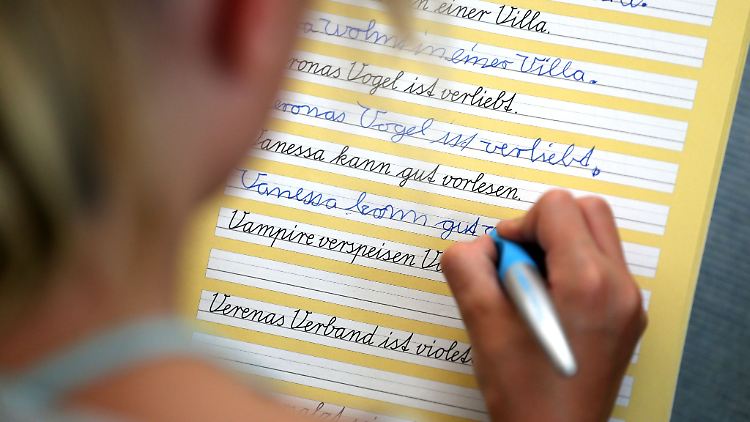 n einer Villa.
a wohnt in einer Villa.
ronas Vogel ist verliebt.
eronas Vogel ist verliebt.
Vanessa kann gut vorlesen.
Vanessa kann gut
Vampire verspeisen V
Verenas Verband ist violet